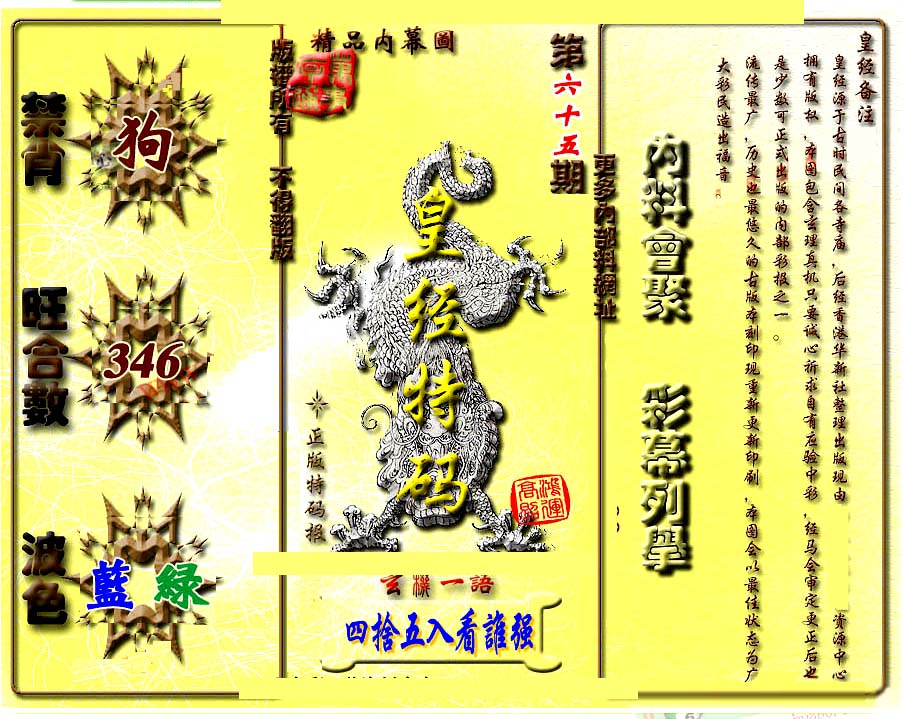 皇经备注
皇经源于古时民间各寺庙，后经香港华新社整理出版现由 资源中心
拥有版权，本图包含玄理真机只要诚心祈求自有应验中彩，经马会审定更正后也
是少数可正式出版的内部彩报之一。
流传最广，历史也最悠久的古版本刻印现重新更新印刷，本图会以最佳状态为广
大彩民造出福音
内料會聚 彩幕列舉
更多内部料網址
第六十五期
精品内幕圖
皇经特码
鴻運
高照
正版特码报
玄機一語
四捨五入看誰强
版權所有 不得翻版
禁肖
狗
旺合數
346
波色
藍 綠